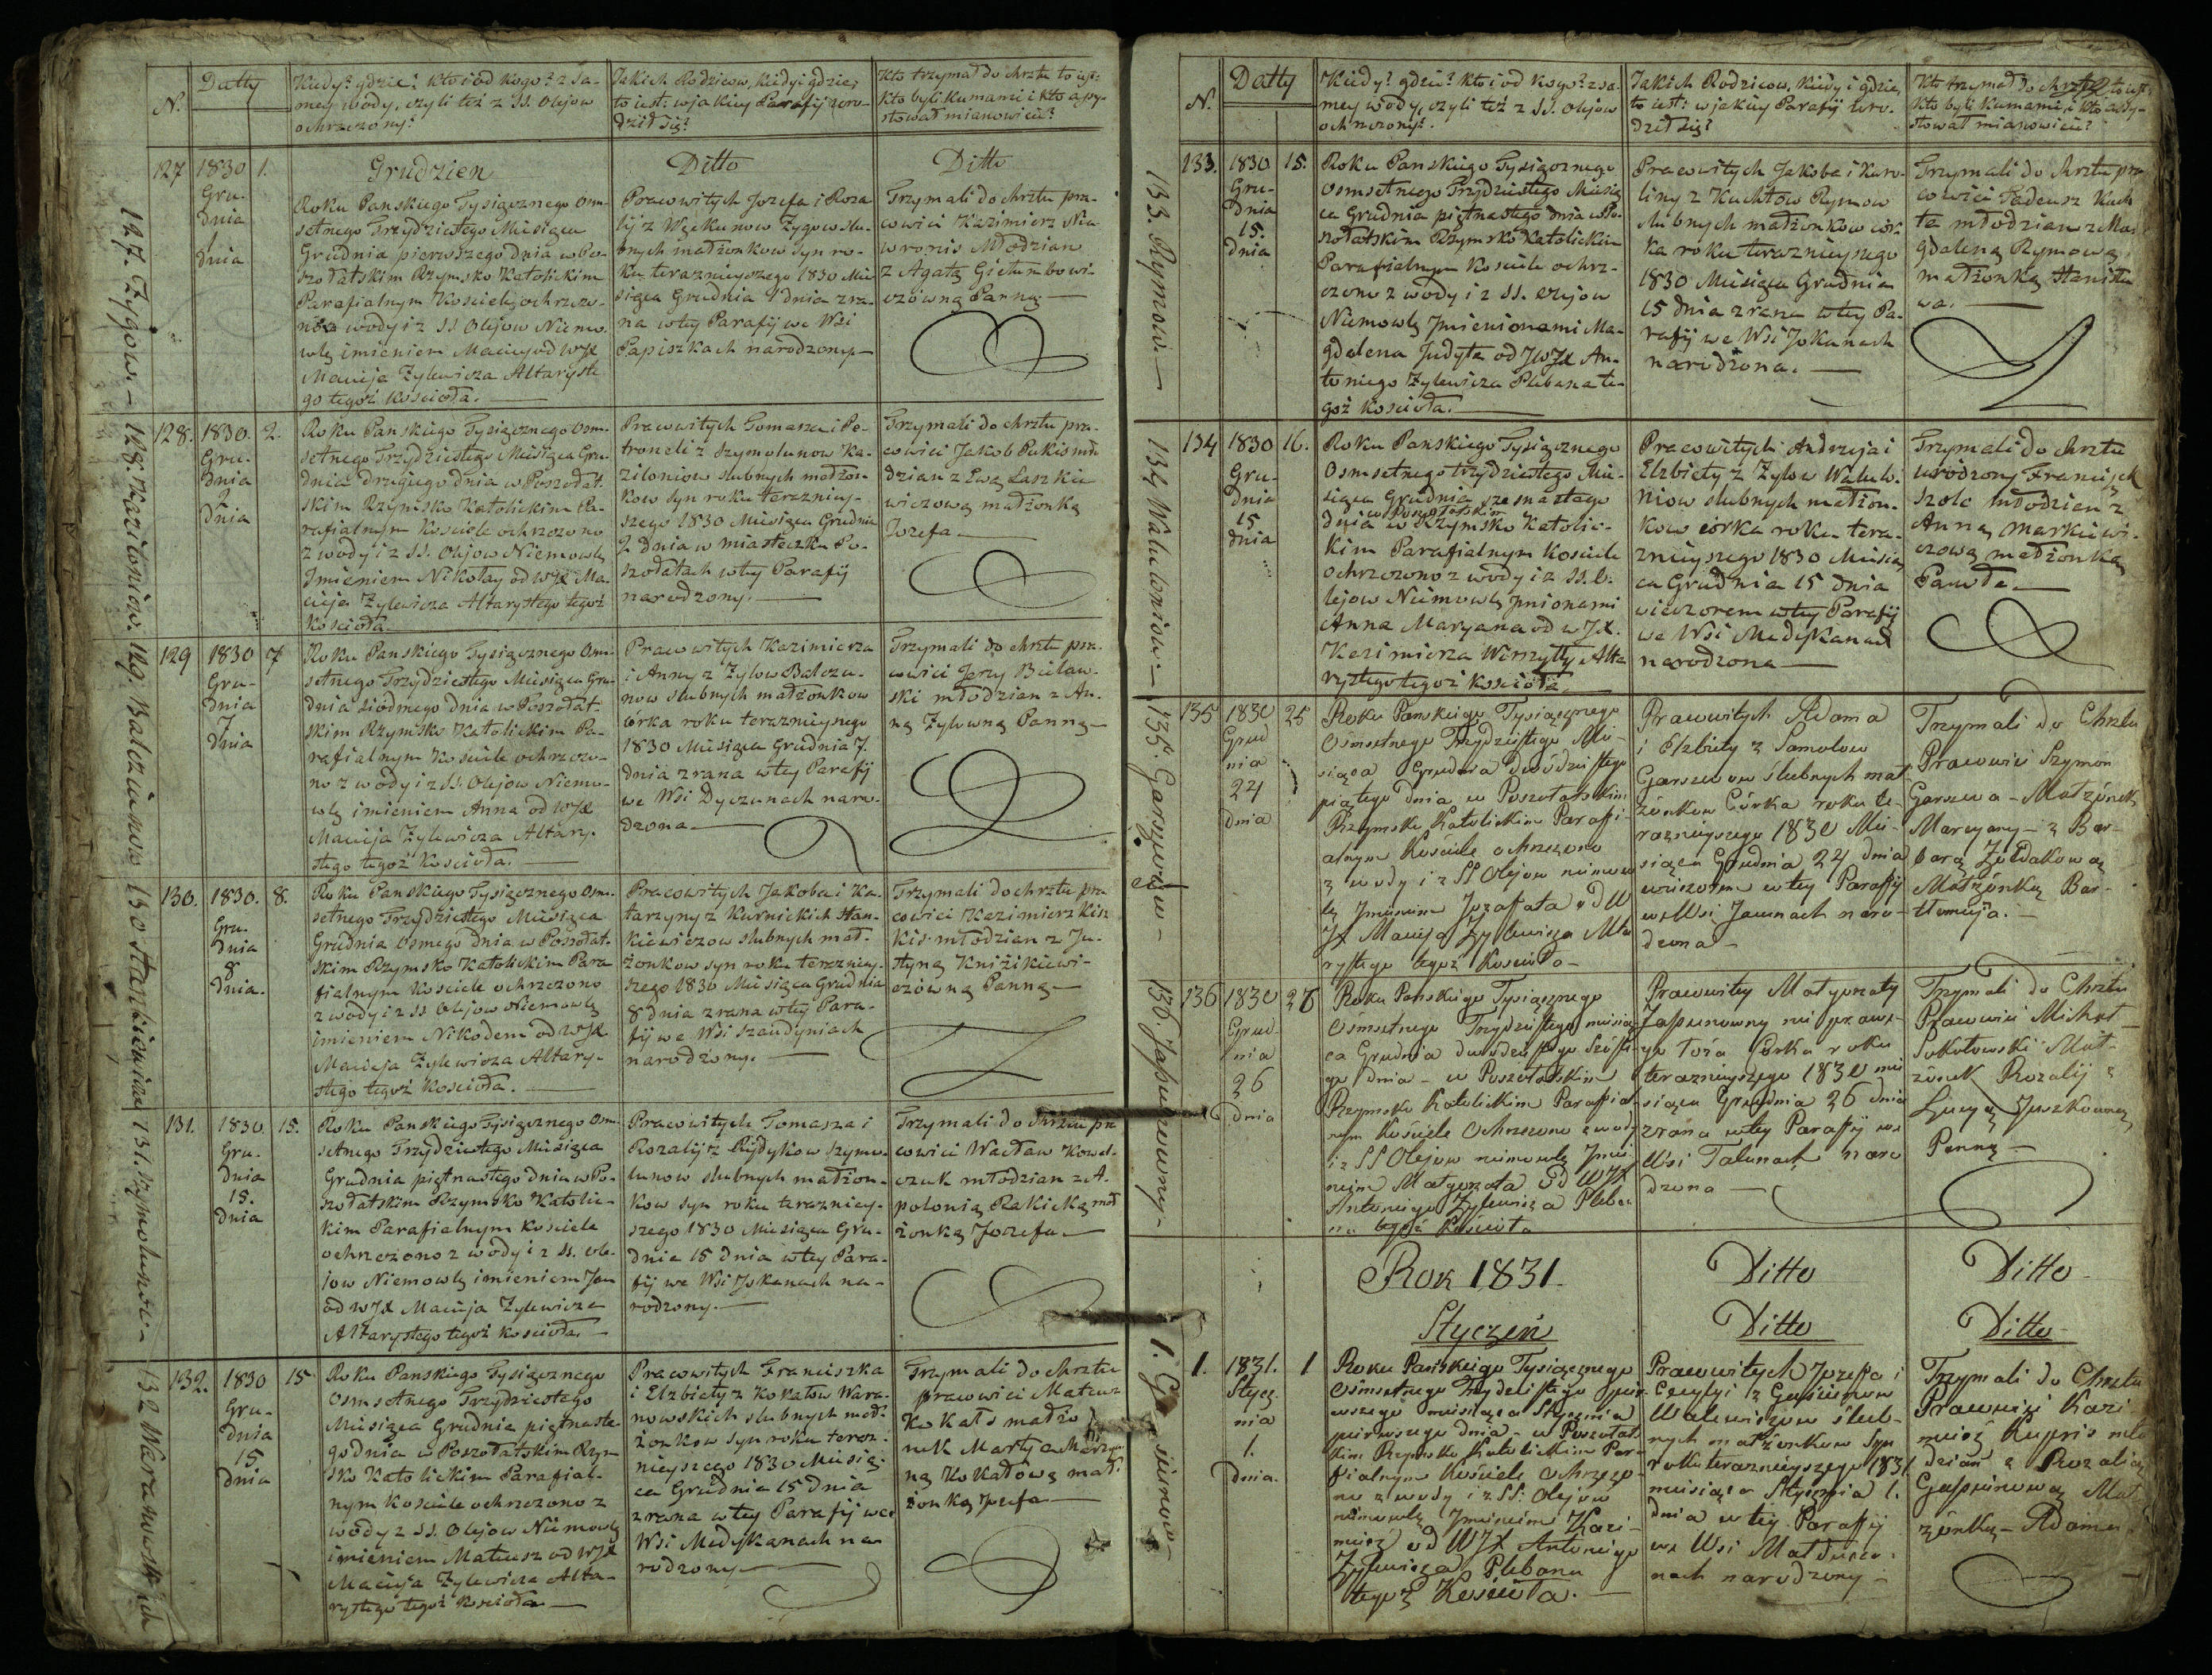 N.
Datty
Kiedy? gdzie? kto i od kogo? z sa-
mey wody, czyli też z SS. Olejow
ochrzczony?
Jakich Rodzicow, kiedy i gdzie,
to iest: w jakiey Parafij uro-
dził się?
Kto trzymał do chrztu to iest:
kto byli kumami i kto assy-
stował mianowicie?
127. Zygow.
127
1830
Gru-
dnia
1
dnia
1.
Grudzien
Roku Panskiego Tysiącznego Osm-
setnego Trzydziestego Miesiąca
Grudnia pierwszego dnia w Po-
szołatskim Rzymsko Katolickim
Parafialnym Kosciele ochrzczo-
no z wody i z SS. Olejow Niemo-
wlę imieniem Maciey od WJX
Macieja Zylewicza Altaryste-
go tegoż Kościoła.
Ditto
Pracowitych Jozefa i Roza-
lij z Węckunow Zygow slu-
bnych małżonkow syn ro-
ku teraznieyszego 1830 Mie-
siąca Grudnia 1 dnia z ra-
na w tey Parafij we Wsi
Papiszkach narodzony.
Ditto
Trzymali do chrztu pra-
cowici Kazimierz Nie-
wronis Młodzian
z Agatą Giełumbowi-
czówną Panną
128. Kaziloniow.
128.
1830.
Gru-
dnia
2
dnia
2.
Roku Panskiego Tysiącznego Osm-
setnego Trzydziestego Miesiąca Gru-
dnia drugiego dnia w Poszołat-
skim Rzymsko Katolickim Pa-
rafialnym Kosciele ochrzczono
z wody i z SS. Olejow Niemowlę
Imieniem Nikołay od WJX Ma-
cieja Zylewicza Altarystego tegoż
Kościoła
Pracowitych Tomasza i Pe-
troneli z Szymolunow Ka-
ziloniow slubnych małżon-
kow syn roku terazniey-
szego 1830 Miesiąca Grudnia
2 dnia w miasteczku Po-
szołatach w tey Parafij
narodzony.
Trzymali do chrztu pra-
cowici Jakob Pukis mło-
dzian z Ewą Laszkie-
wiczową małżonką
Jozefa
129. Balczunow
129
1830
Gru-
dnia
7
dnia
7
Roku Panskiego Tysiącznego Osm-
setnego Trzydziestego Miesiąca Gru-
dnia siodmego dnia w Poszołat-
skim Rzymsko Katolickim Pa-
rafialnym Kosciele ochrzczo-
no z wody i z SS. Olejow Niemo-
wlę imieniem Anna od WJX
Macieja Zylewicza Altary-
stego tegoż Kościoła.
Pracowitych Kazimierza
i Anny z Zylow Balczu-
now slubnych małżonkow
corka roku teraznieyszego
1830 Miesiąca Grudnia 7.
dnia z rana w tey Parafij
we Wsi Dyczunach naro-
dzona
Trzymali do chrztu pra-
cowici Jerzy Bielaw-
ski młodzian z An-
ną Zylowną Panną
130 Stankiewicza
130.
1830.
Gru-
dnia
8
dnia.
8.
Roku Panskiego Tysiącznego Osm-
setnego Trzydziestego Miesiąca
Grudnia osmego dnia w Poszołat-
skim Rzymsko Katolickim Para-
fialnym Kosciele ochrzczono
z wody i z SS Olejow Niemowlę
imieniem Nikodem od WJX
Macieja Zylewicza Altary-
stego tegoż Kościoła.
Pracowitych Jakoba i Ka-
tarzyny z Kurnickich Stan-
kiewiczow slubnych mał-
żonkow syn roku terazniey-
szego 1830 Miesiąca Grudnia
8 dnia z rana w tey Para-
fij we Wsi Szaudyniach
narodzony.
Trzymali do chrztu pra-
cowici Kazimierz Kisz-
kis młodzian z Ju-
styną Kniżikiewi-
czówną Panną
131. Szymolunow.
131.
1830.
Gru-
dnia
15.
dnia
15.
Roku Panskiego Tysiącznego Osm-
setnego Trzydziestego Miesiąca
Grudnia piętnastego dnia w Po-
szołatskim Rzymsko Katolic-
kim Parafialnym Kosciele
ochrzczono z wody i z SS. Ole-
jow Niemowlę imieniem Jan
od WJX Macieja Zylewicza
Altarystego tegoż Kościoła.
Pracowitych Tomasza i
Rozalij z Rydykow Szymo-
lunow slubnych małżon-
kow syn roku terazniey-
szego 1830 Miesiąca Gru-
dnia 15 dnia w tey Para-
fij we Wsi Jokanach na-
rodzony.
Trzymali do chrztu pra-
cowici Wacław Kowal-
czuk młodzian z A-
polonią Rakicką mał-
żonką Jozefa
132 Waranowskich
132.
1830
Gru-
dnia
15
dnia
15
Roku Panskiego Tysiącznego
Osmsetnego Trzydziestego
Miesiąca Grudnia piętnaste-
go dnia w Poszołatskim Rzym-
sko Katolickim Parafial-
nym Kosciele ochrzczono z
wody z SS. Olejow Niemowlę
imieniem Mateusz od WJX
Macieja Zylewicza Alta-
rystego tegoż Kościoła
Pracowitych Franciszka
i Elzbiety z Kokatow Wara-
nowskich slubnych mał-
żonkow syn roku teraz-
nieyszego 1830 Miesią-
ca Grudnia 15 dnia
z rana w tey Parafij we
Wsi Medykanach na-
rodzony
Trzymali do chrztu
pracowici Mateusz
Kokats małżo-
nek Marty z Marya-
ną Kokatową mał-
żonką Jozefa
N.
Datty
Kiedy? gdzie? kto i od kogo? z sa-
mey wody, czyli też z SS. Olejow
ochrzczony?
Jakich Rodzicow, kiedy i gdzie,
to iest: w jakiey Parafij uro-
dził się?
Kto trzymał do chrztu to iest:
kto byli kumami, i kto assy-
stował mianowicie?
133. Rymow.
133.
1830
Gru-
dnia
15.
dnia
15.
Roku Panskiego Tysiącznego
Osmsetnego Trzydziestego Miesią-
ca Grudnia piętnastego dnia w Po-
szołatskim Rzymsko Katolickim
Parafialnym Kosciele ochrz-
czono z wody i z SS. Olejow
Niemowlę Imienionami Ma-
gdalena Judyta od JWJX An-
toniego Zylewicza Plebana te-
goż Kościoła.
Pracowitych Jakoba i Karo-
liny z Kuchtow Rymow
slubnych małżonkow cor-
ka roku teraznieyszego
1830 Miesiąca Grudnia
15 dnia z rana w tey Pa-
rafij we Wsi Jokanach
narodzona.
Trzymali do chrztu pra-
cowici Tadeusz Kuch-
ta młodzian z Ma-
gdaleną Rymową
małżonką Stanisła-
wa.
134 Waluloniow.
134
1830
Gru-
dnia
15
dnia
16.
Roku Panskiego Tysiącznego
Osmsetnego trzydziestego Mie-
siąca Grudnia szesnastego
dnia w Poszołatskim Rzymsko Katolic-
kim Parafialnym Kosciele
ochrzczono z wody i z SS. O-
lejow Niemowlę Imionami
Anna Maryana od WJX.
Kazimierza Wirszyłły Alta-
rystego tegoż Kościoła.
Pracowitych Andrzeja i
Elzbiety z Zylow Walulo-
niow slubnych małżon-
kow corka roku tera-
znieyszego 1830 Miesią-
ca Grudnia 15 dnia
wieczorem w tey Parafij
we Wsi Medykanach
narodzona
Trzymali do chrztu
urodzony Franciszek
Szolc młodzian z
Anną Markiewi-
czową małżonką
Pawła.
135. Garszwow
135
1830
Grud
nia
24
dnia
25
Roku Panskiego Tysiącznego
Osmsetnego Trzydziestego Mie-
siąca Grudnia dwódziestego
piątego dnia w Poszołatskim
Rzymsko Katolickim Paraffi-
alnym Kosciele ochrzczono
z wody i z SS Olejow niemow-
lę Imieniem Jozafata od W
JX Macieja Zylewicza Alta-
rystego tegoż Kościoła
Pracowitych Adama
i Elzbiety z Samolow
Garszwow slubnych mał-
żonkow Córka roku te-
raznieyszego 1830 Mie-
siąca Grudnia 24 dnia
wieczorem w tey Paraffij
we Wsi Jawnach naro-
dzona
Trzymali do Chrztu
Pracowici Szymon
Garszwa Małżonek
Maryany z Bar-
barą Żołdakową
Małżonką Bar-
tłomieja.
136. Jaspunowny
136
1830
Grud-
nia
26
dnia
26
Roku Panskiego Tysiącznego
Osmsetnego Trzydziestego miesią-
ca Grudnia dwódziestego szóste-
go dnia w Poszołatskim
Rzymsko Katolickim Parafial-
nym Kosciele Ochrzczono z wody
i z SS Olejow niemowlę Imie-
niem Małgorzata Od WJX
Antoniego Zylewicza Pleba-
na tegoż Kościoła
Pracowitey Małgorzaty
Jaspunowny nieprawe-
go łoża Córka roku
teraznieyszego 1830 mie-
siąca Grudnia 26 dnia
z rana w tey Paraffij we
Wsi Talunach naro-
dzona
Trzymali do Chrztu
Pracowici Michał
Sokołowski Mał-
żonek Rozalij z
Łucyą Juszkowną
Panną
Rok 1831.
Ditto
Ditto
Styczeń
Ditto
Ditto
1.
1831.
Stycz-
nia
1.
dnia.
1
Roku Panskiego Tysiącznego
Osmsetnego Trzydziestego pier-
wszego miesiąca Stycznia
pierwszego dnia w Poszołat-
skim Rzymsko Katolickim Para-
fialnym Kosciele Ochrzczo-
no z wody i z SS. Olejow
niemowlę Imieniem Kazi-
mierz od WJX Antoniego
Zylewicza Plebana
tegoż Kościoła.
Pracowitych Jozefa i
Cecylyi z Gasiunow
Walewiczow slub-
nych małżonkow Syn
roku teraznieyszego 1831.
miesiąca Stycznia 1.
dnia w tey Paraffij
we Wsi
nach narodzony
Trzymali do Chrztu
Pracowici Kazi-
mierz Kupris mło-
dzian z Rozalią
Gasiunową Mał-
żonką Adama.